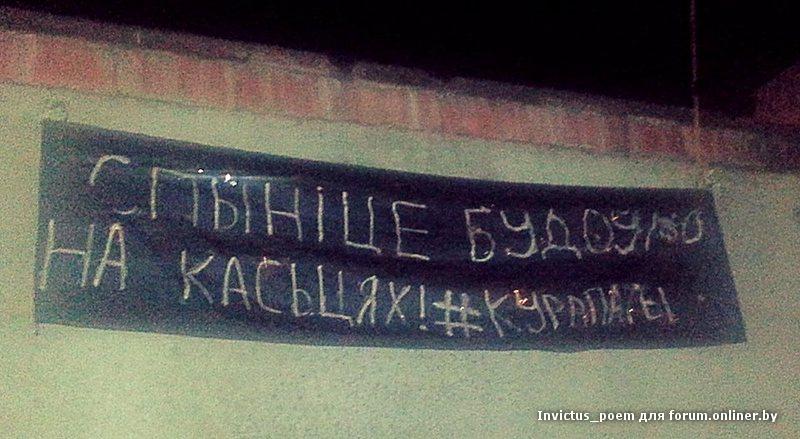 СПЫНІЦЕ БУДОЎЛЮ
НА КАСЬЦЯХ! #КУРАПАТЫ
Invictus_poem для forum.onliner.by